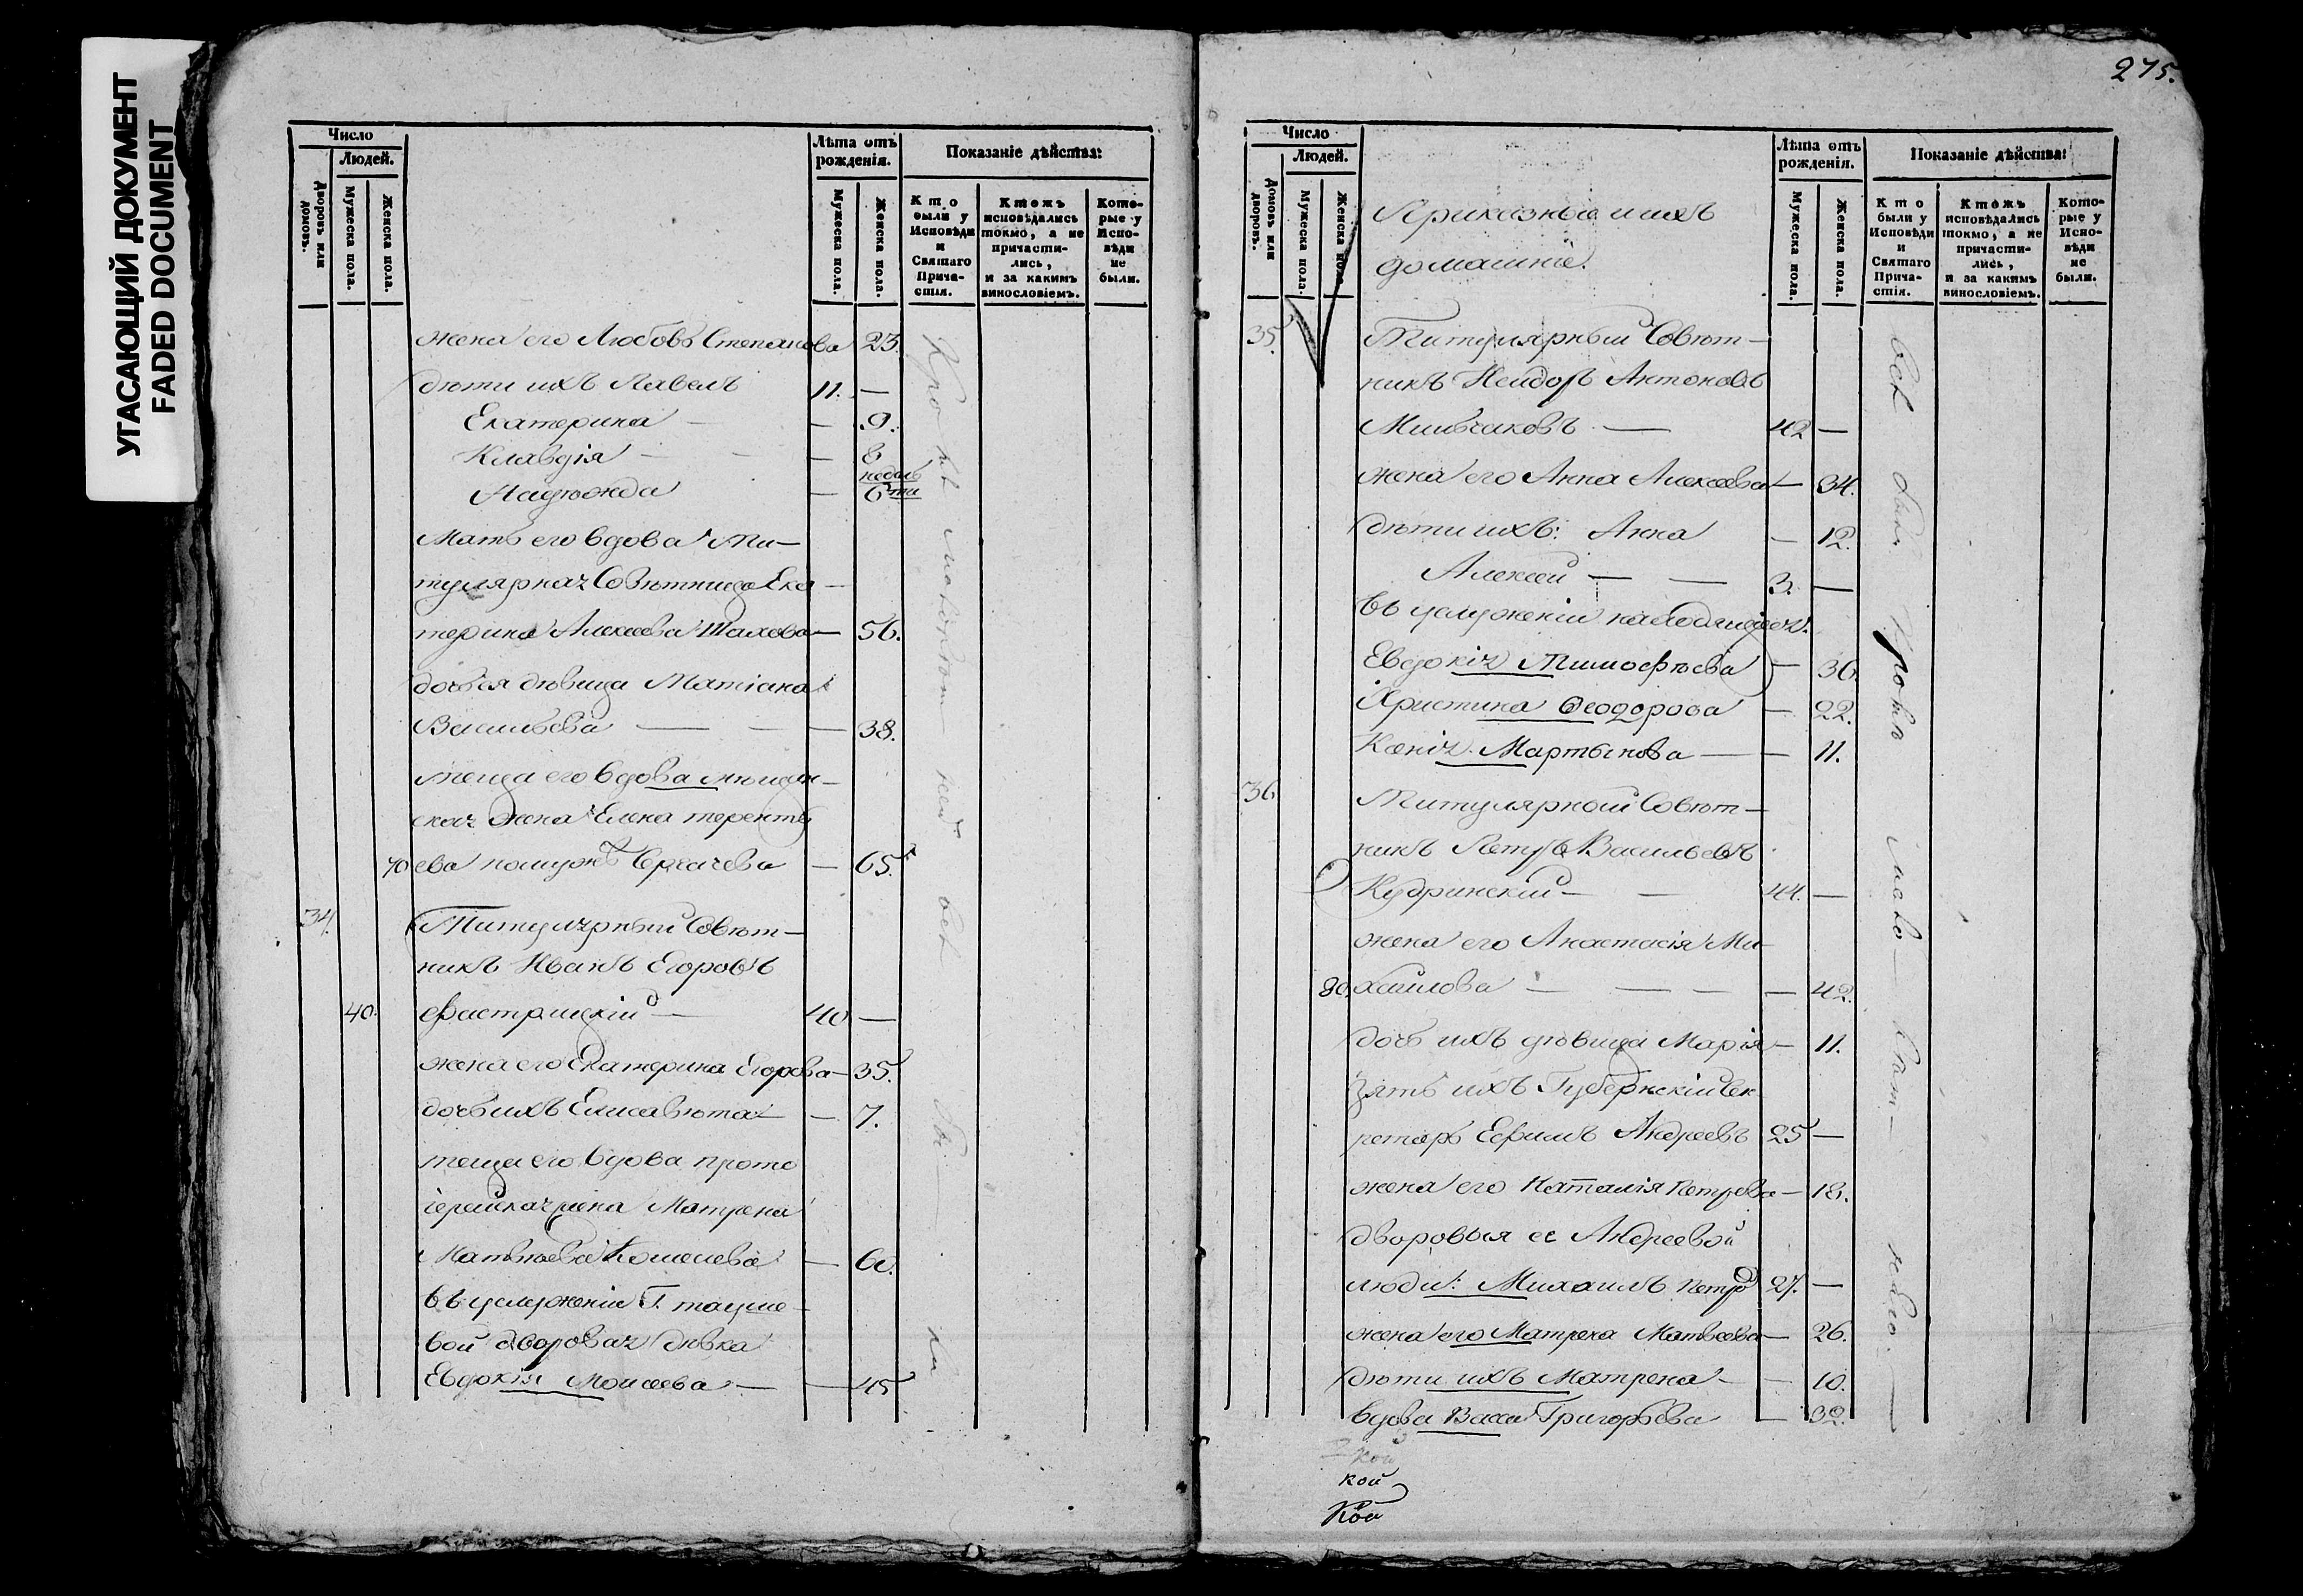 УГАСАЮЩИЙ ДОКУМЕНТ
FADED DOCUMENT
Число
Людей.
Дворовъ или домовъ.
Мужеска пола.
Женска пола.
Лѣта отъ рожденія.
Мужеска пола.
Женска пола.
Показаніе дѣйства:
Кто были у Исповѣди и Святаго Причастія.
Ктожъ исповѣдались токмо, а не причастились, и за какимъ винословіемъ.
Которые у Исповѣди не были.
жена его Любовь Степанова 23.
дѣти ихъ Павелъ 11. —
Екатерина — — 9.
Клавдія — — — 8
Надежда — недѣль 6ти
Мать его вдова Ти—
тулярная Совѣтница Ека—
терина Алексѣева — 56.
дочь ея дѣвица Татіана
Васильева — — — 38.
теща его вдова мѣщан—
ская жена Елена Теренть
70 ева — 65.
34. Титулярный Совѣт—
никъ Иванъ Егоровъ
40. 40 —
жена его Екатерина Егорова — 35.
дочь ихъ Елисавета — — 7.
теща его вдова прото
іерейская жена Матрена
Матвѣева Кошелева — 60.
въ услуженіи Г.
вой дворовая дѣвка
Евдокія Моисеева — — 45
275.
Число
Людей.
Домовъ или дворовъ.
Мужеска пола.
Женска пола.
Приказные и ихъ
домашніе.
Лѣта отъ рожденія.
Мужеска пола.
Женска пола.
Показаніе дѣйства:
Кто были у Исповѣди и Святаго Причастія.
Ктожъ исповѣдались токмо, а не причастились, и за какимъ винословіемъ.
Которые у Исповѣди не были.
35. Титулярный Совѣт—
никъ Антоновъ
— 42 —
жена его Анна Алексѣева — 34.
дѣти ихъ: Анна — 12.
Алексѣй — — 3. —
въ услуженіи находящіяся.
Евдокія Тимофѣева — 36.
Христина Ѳеодорова — 22.
Ксенія Мартынова — — 11.
36. Титулярной Совѣт—
никъ Петръ Васильевъ
Кудринскій — — 44. —
жена его Анастасія Ми—
80. хаилова — — — — 42.
дочь ихъ дѣвица Марія — 11.
зять ихъ Губернскій Сек
ретарь Ефимъ Андреевъ 25 —
жена его Наталія Петрова — 18.
дворовыя ее Андреевой
люди: Михаилъ Петровъ 27. —
жена его Матрена Матвѣева — 26.
дѣти ихъ Матрена — — 10.
вдова Васса Григорьева — 32.
кой
кой
Кой